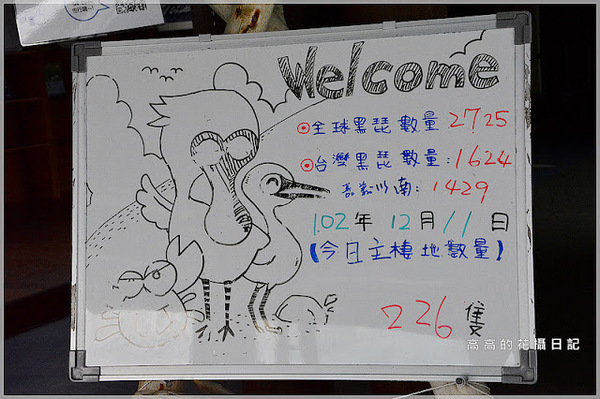 Welcome
全球黑琵數量 2725
台灣黑琵數量:1624
嘉義以南:1429
102年 12月 11日
【今日主棲地數量】
226 隻
高高的花攝日記